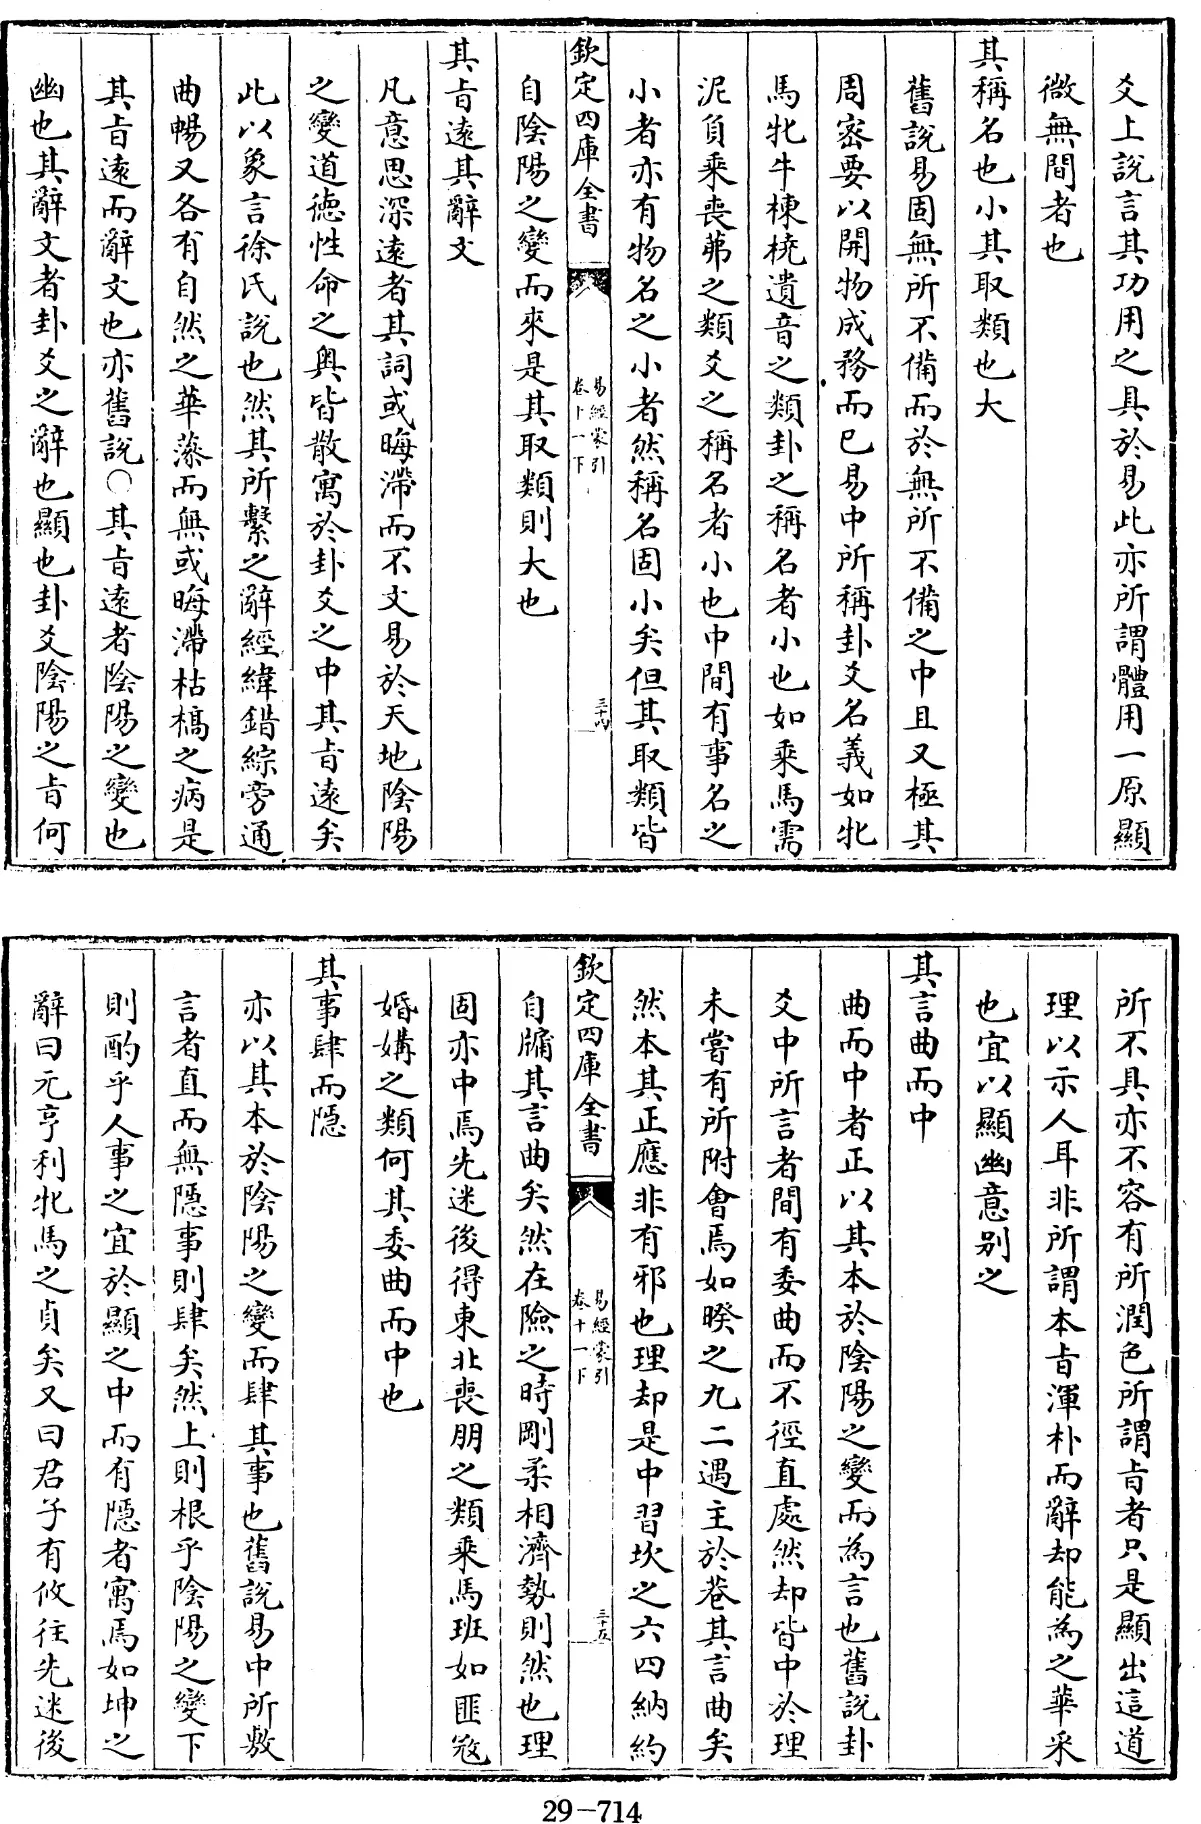 爻上說言其功用之具於易此亦所謂體用一原顯
微無間者也
其稱名也小其取類也大
舊說易固無所不備而於無所不備之中且又極其
周密要以開物成務而已易中所稱卦爻名義如牝
馬牝牛棟橈遺音之類卦之稱名者小也如乘馬需
泥負乘喪茀之類爻之稱名者小也中間有事名之
小者亦有物名之小者然稱名固小矣但其取類皆
欽定四庫全書
易經蒙引
卷十一下
三十四
自陰陽之變而來是其取類則大也
其旨遠其辭文
凡意思深遠者其詞或晦滯而不文易於天地陰陽
之變道德性命之奧皆散寓於卦爻之中其旨遠矣
此以象言徐氏說也然其所繫之辭經緯錯綜旁通
曲暢又各有自然之華藻而無或晦滯枯槁之病是
其旨遠而辭文也亦舊說○其旨遠者陰陽之變也
幽也其辭文者卦爻之辭也顯也卦爻陰陽之旨何
所不具亦不容有所潤色所謂旨者只是顯出這道
理以示人耳非所謂本旨渾朴而辭却能為之華采
也宜以顯幽意別之
其言曲而中
曲而中者正以其本於陰陽之變而為言也舊說卦
爻中所言者間有委曲而不徑直處然却皆中於理
未嘗有所附會焉如暌之九二遇主於巷其言曲矣
然本其正應非有邪也理却是中習坎之六四納約
欽定四庫全書
易經蒙引
卷十一下
三十五
自牖其言曲矣然在險之時剛柔相濟勢則然也理
固亦中焉先迷後得東北喪朋之類乘馬班如匪寇
婚媾之類何其委曲而中也
其事肆而隱
亦以其本於陰陽之變而肆其事也舊說易中所敷
言者直而無隱事則肆矣然上則根乎陰陽之變下
則酌乎人事之宜於顯之中而有隱者寓焉如坤之
辭曰元亨利牝馬之貞矣又曰君子有攸往先迷後
29-714